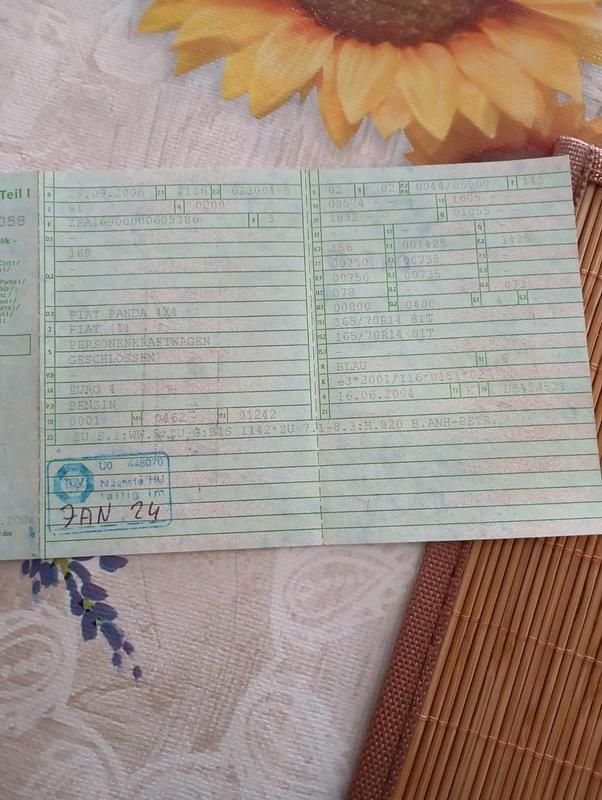 Teil I
058
28.09.2006 2.1 4136 2.2 623004 5
01 4 0200
ZFA16900000695386 3 3
169
D.3 FIAT PANDA 4X4
2 FIAT (I)
5 PERSONENKRAFTWAGEN
GESCHLOSSEN
V.9 -
14 EURO 4
P.3 BENZIN
10 0001 14.1 0462 P.1 01242
22 ZU G:BIS 1142*ZU 7.1-8.3:H.820 B.ANH-BETR.
02 9 02 P.2 P.4 0044/05000 T 145
1605
1632 01055
156 001425 1425
00750 00735
00750 00735
078 073
00800 0400 S.1 4 S.2 -
165/70R14 81T
165/70R14 81T
-
R BLAU 11 5
K e3*2001/116*0151*02
6 16.06.2004 17 K 16
21
TÜV
Ü0 448070
Nächste HU
fällig im
JAN 24